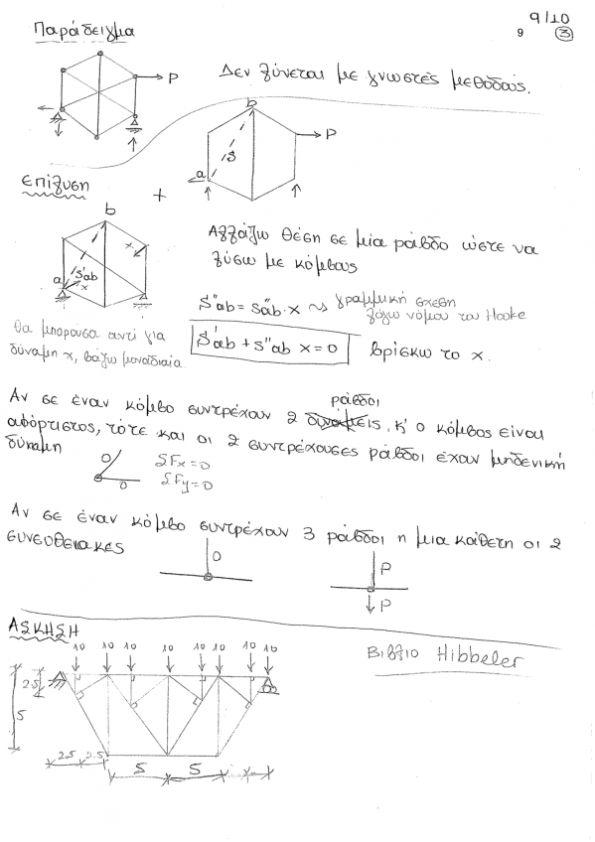 9/10
9 3
Παράδειγμα
P
Δεν λύνεται με γνωστές μεθόδους.
b
P
S
a
Επίλυση
+
b
Αλλάζω θέση σε μία ράβδο ώστε να
λύσω με κόμβους
x
S'ab
a
x
S"ab = S"ab · x ⇝ γραμμική σχέση
λόγω νόμου του Hooke
θα μπορούσα αντί για
δύναμη x, βάζω μοναδιαία
S'ab + S"ab x = 0
βρίσκω το x.
ράβδοι
Αν σε έναν κόμβο συντρέχουν 2 δυνάμεις, κ' ο κόμβος είναι
αφόρτιστος, τότε και οι 2 συντρέχουσες ράβδοι έχουν μηδενική
δύναμη
0
0
ΣFx=0
ΣFy=0
Αν σε έναν κόμβο συντρέχουν 3 ράβδοι η μια κάθετη οι 2
συνευθειακές
0
P
P
ΑΣΚΗΣΗ
10 10 10 10 10 10 10 10
Βιβλίο Hibbeler
2.5
5
2.5 2.5
5 5